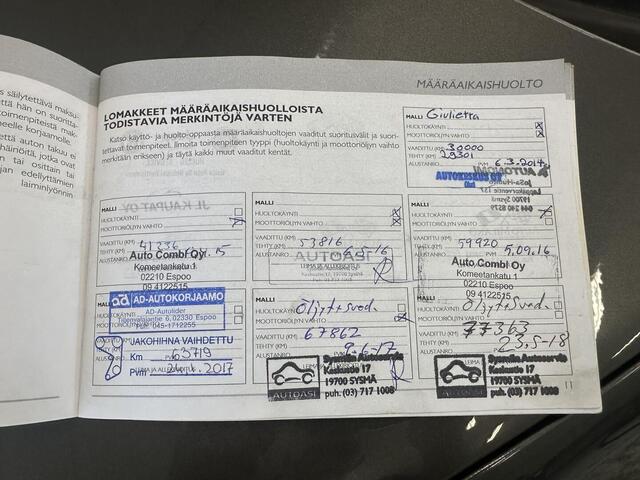 s säilytettävä maksu-
että hän on suoritta-
toimenpiteistä mak-
eelle korjaamolle.
an auton takuu ei
häiriöitä, jotka ovat
tai osittain tai
orjan edellyttämien
laiminlyönnin
MÄÄRÄAIKAISHUOLTO
LOMAKKEET MÄÄRÄAIKAISHUOLLOISTA
TODISTAVIA MERKINTÖJÄ VARTEN
Katso käyttö- ja huolto-oppaasta määräaikaishuoltojen vaaditut suoritusvälit ja suori-
tettavat toimenpiteet. Ilmoita toimenpiteen tyyppi (huoltokäynti ja moottoriöljyn vaihto
merkitään erikseen) ja täytä kaikki muut vaaditut kentät.
MALLI Giulietta
HUOLTOKÄYNTI X
MOOTTORIÖLJYN VAIHTO X
VAADITTU (KM) 30000
TEHTY (KM) 29301
ALUSTANRO PVM 6.3.2014
AUTOKESKUS OY
MALLI
HUOLTOKÄYNTI
MOOTTORIÖLJYN VAIHTO
VAADITTU (KM)
TEHTY (KM) 41236
ALUSTANRO
Auto Combi Oy
Komeetankatu 1
02210 Espoo
09 4122515
MALLI
HUOLTOKÄYNTI X
MOOTTORIÖLJYN VAIHTO X
VAADITTU (KM)
TEHTY (KM) 53816
ALUSTANRO 6-5-16
MALLI
HUOLTOKÄYNTI
MOOTTORIÖLJYN VAIHTO
VAADITTU (KM)
TEHTY (KM) 59920
ALUSTANRO 5.09.16
Auto Combi Oy
Komeetankatu 1
02210 Espoo
09 4122515
ad AD-AUTOKORJAAMO
AD-Autolider
02330 Espoo
Puh. 045-1712255
JAKOHIHNA VAIHDETTU
Km 63719
Pvm 2017
MALLI Öljyt+suod.
HUOLTOKÄYNTI
MOOTTORIÖLJYN VAIHTO
VAADITTU (KM) 67862
TEHTY (KM)
ALUSTANRO 9-6-17
AUTOASI
Keskustie 17
19700 SYSMÄ
puh. (03) 717 1008
MALLI Öljyt+suod.
HUOLTOKÄYNTI
MOOTTORIÖLJYN VAIHTO
VAADITTU (KM) 77363
TEHTY (KM)
ALUSTANRO 23.5-18
AUTOASI
Sysmän Autoservice
Keskustie 17
19700 SYSMÄ
puh. (03) 717 1008
11